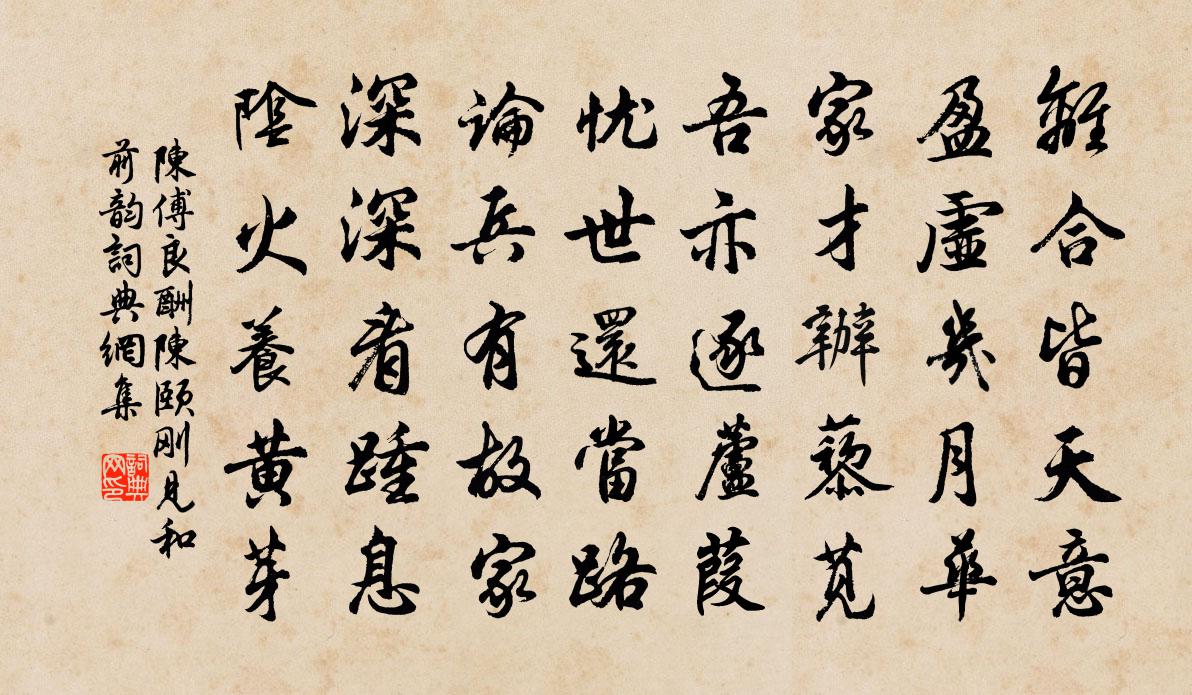 離合皆天意
盈虛幾月華
家才辦藜莧
吾亦逐蘆葭
忧世還當路
論兵有故家
深深看踵息
陰火養黃芽
陳傅良酬陳頤剛見和
前韵詞典網集
詞典
网印